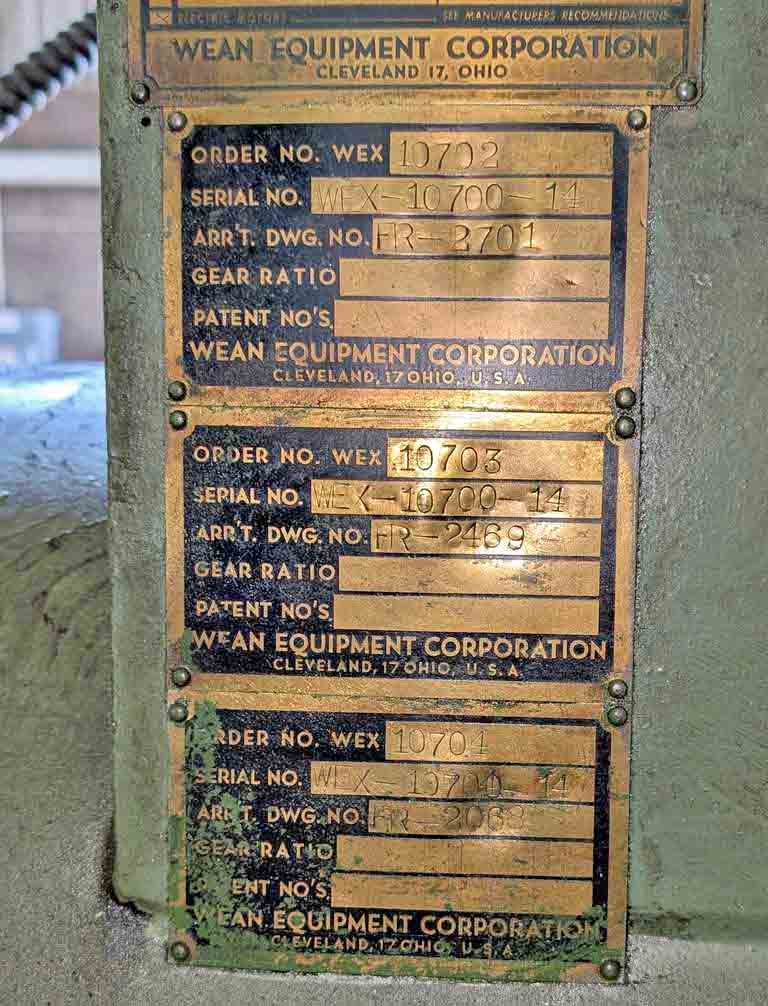 ELECTRIC MOTORS SEE MANUFACTURERS RECOMMENDATIONS
WEAN EQUIPMENT CORPORATION
CLEVELAND 17, OHIO
ORDER NO. WEX 10702
SERIAL NO. WEX-10700-14
ARR'T. DWG. NO. HR-2701
GEAR RATIO
PATENT NO'S.
WEAN EQUIPMENT CORPORATION
CLEVELAND, 17 OHIO, U. S. A.
ORDER NO. WEX 10703
SERIAL NO. WEX-10700-14
ARR'T. DWG. NO. HR-2469
GEAR RATIO
PATENT NO'S.
WEAN EQUIPMENT CORPORATION
CLEVELAND, 17 OHIO, U. S. A.
ORDER NO. WEX 10704
SERIAL NO. WEX-10700-14
ARR'T. DWG. NO.
GEAR RATIO
PATENT NO'S.
WEAN EQUIPMENT CORPORATION
CLEVELAND, 17 OHIO, U. S. A.